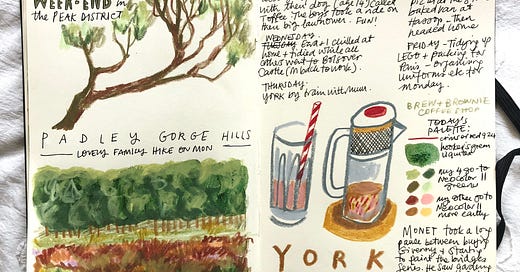 WEEK-END in
the PEAK DISTRICT
PADLEY GORGE HILLS
LOVELY FAMILY HIKE ON MON
with their dog (age 14) called
Toffee. The boys took a ride on
their big lawnmower - FUN!
WEDNESDAY:
TUESDAY End + I chilled at
home + tidied while all
others went to Bolsover
Castle (Match to work).
THURSDAY:
YORK by train with mum.
baked pan at
Hassop - Then
headed home.
FRIDAY - Tidying up
LEGO + packing for
Paris - organising
uniforms etc for
Monday.
BREW + BROWNIE
COFFEE SHOP
TODAY'S
PALETTE:
hooker's green
liquitex
my 4 go-to
Neocolor II
greens
my other go to
Neocolor II
more earthy
YORK
MONET took a long
pause between buying
Giverny + starting
to paint the bridges
series. He saw gardening